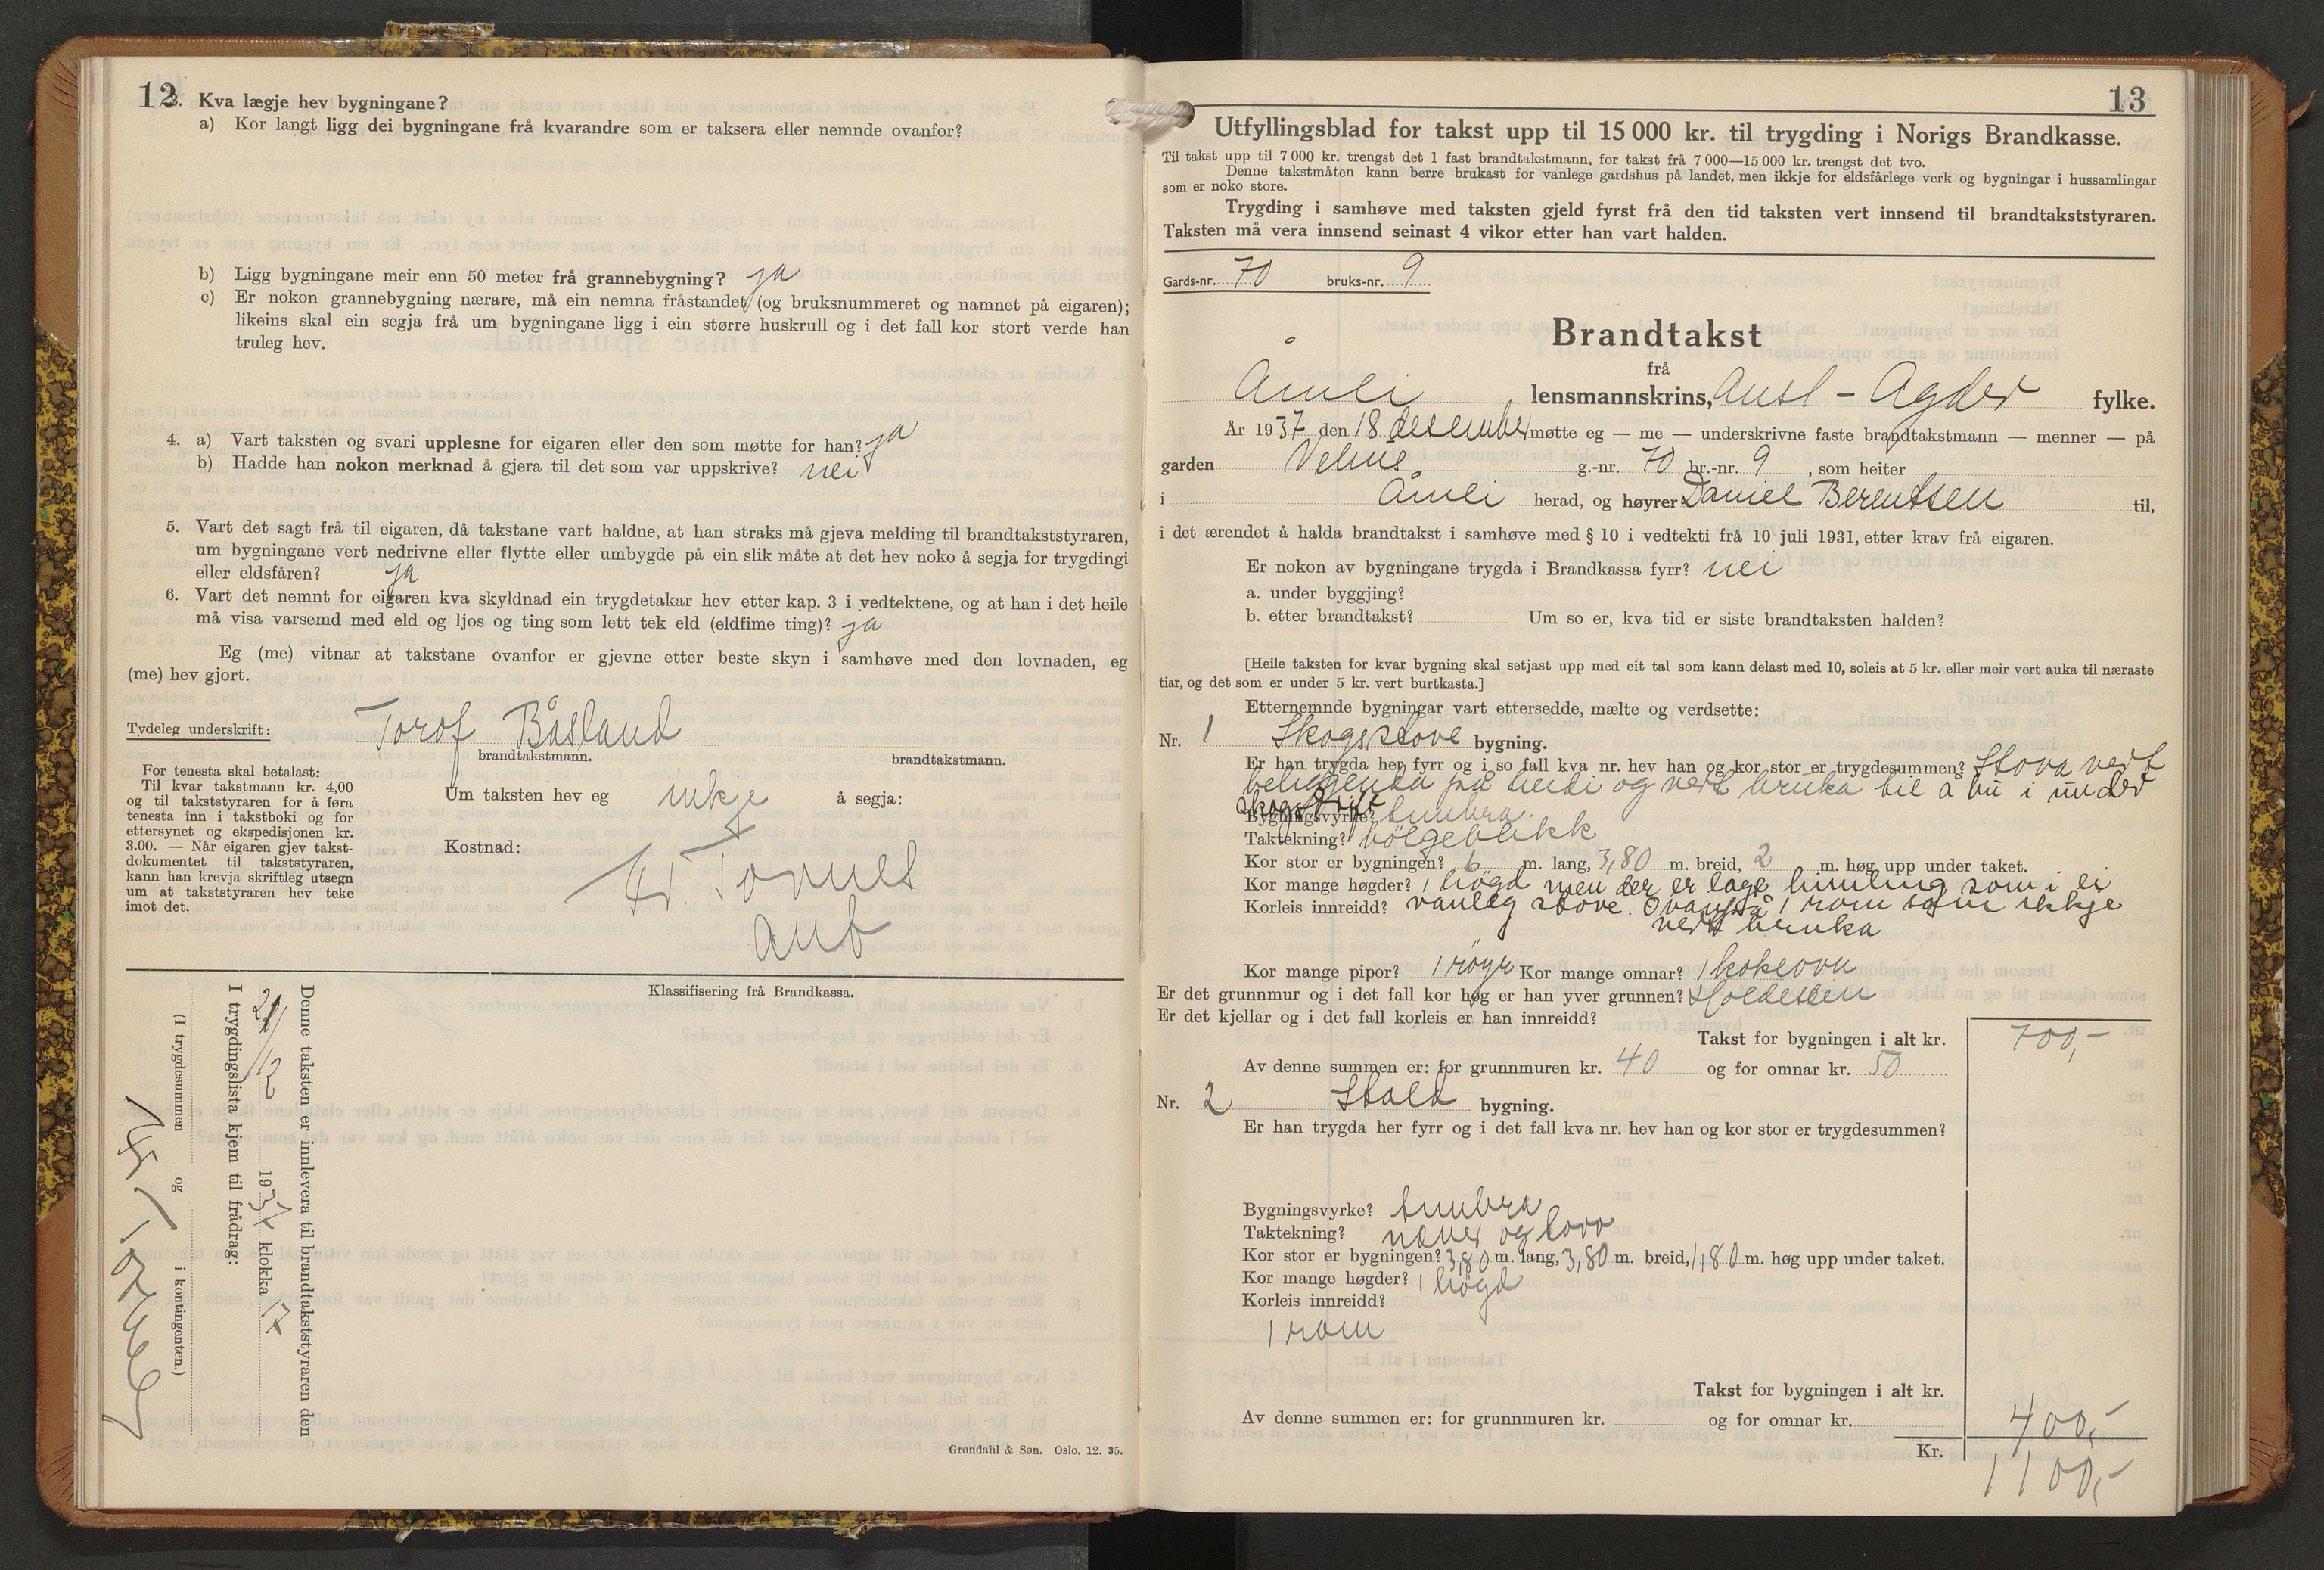 12
3. Kva lægje hev bygningane?
a) Kor langt ligg dei bygningane frå kvarandre som er taksera eller nemnde ovanfor?
b) Ligg bygningane meir enn 50 meter frå grannebygning? ja
c) Er nokon grannebygning nærare, må ein nemna fråstandet (og bruksnummeret og namnet på eigaren);
likeins skal ein segja frå um bygningane ligg i ein større huskrull og i det fall kor stort verde han
truleg hev.
4. a) Vart taksten og svari upplesne for eigaren eller den som møtte for han? ja
b) Hadde han nokon merknad å gjera til det som var uppskrive? nei
5. Vart det sagt frå til eigaren, då takstane vart haldne, at han straks må gjeva melding til brandtakststyraren,
um bygningane vert nedrivne eller flytte eller umbygde på ein slik måte at det hev noko å segja for trygdingi
eller eldsfåren? ja
6. Vart det nemnt for eigaren kva skyldnad ein trygdetakar hev etter kap. 3 i vedtektene, og at han i det heile
må visa varsemd med eld og ljos og ting som lett tek eld (eldfime ting)? ja
Eg (me) vitnar at takstane ovanfor er gjevne etter beste skyn i samhøve med den lovnaden, eg
(me) hev gjort.
Tydeleg underskrift: Torof Båsland
brandtakstmann. brandtakstmann.
For tenesta skal betalast:
Til kvar takstmann kr. 4,00
og til takststyraren for å føra
tenesta inn i takstboki og for
ettersynet og ekspedisjonen kr.
3.00. — Når eigaren gjev takst-
dokumentet til takststyraren,
kann han krevja skriftleg utsegn
um at takststyraren hev teke
imot det.
Um taksten hev eg inkje å segja:
Kostnad:
Kr. Tovnes
anb
Klassifisering frå Brandkassa.
Denne taksten er innlevera til brandtakststyraren den
21/12 1937 klokka 17
I trygdingslista kjem til frådrag:
(I trygdesummen og i kontingenten.)
Kr. Tovnes
Grøndahl & Søn. Oslo. 12. 35.
13
Utfyllingsblad for takst upp til 15 000 kr. til trygding i Norigs Brandkasse.
Til takst upp til 7 000 kr. trengst det 1 fast brandtakstmann, for takst frå 7 000—15 000 kr. trengst det tvo.
Denne takstmåten kann berre brukast for vanlege gardshus på landet, men ikkje for eldsfårlege verk og bygningar i hussamlingar
som er noko store.
Trygding i samhøve med taksten gjeld fyrst frå den tid taksten vert innsend til brandtakststyraren.
Taksten må vera innsend seinast 4 vikor etter han vart halden.
Gards-nr. 70 bruks-nr. 9
Brandtakst
frå
Åmli lensmannskrins, Aust-Agder fylke.
År 1937 den 18 desember møtte eg — me — underskrivne faste brandtakstmann — menner — på
garden Velme g.-nr. 70 br.-nr. 9, som heiter
i Åmli herad, og høyrer Daniel Berentsen til,
i det ærendet å halda brandtakst i samhøve med § 10 i vedtekti frå 10 juli 1931, etter krav frå eigaren.
Er nokon av bygningane trygda i Brandkassa fyrr? nei
a. under byggjing?
b. etter brandtakst? Um so er, kva tid er siste brandtaksten halden?
[Heile taksten for kvar bygning skal setjast upp med eit tal som kann delast med 10, soleis at 5 kr. eller meir vert auka til næraste
tiar, og det som er under 5 kr. vert burtkasta.]
Etternemnde bygningar vart ettersedde, mælte og verdsette:
Nr. 1 Skogsstove bygning.
Er han trygda her fyrr og i so fall kva nr. hev han og kor stor er trygdesummen? Stova vert
beliggenda på heidi og vert bruka til å bu i under
skogsdrift
Bygningsvyrke? tumbra.
Taktekning? bölgeblikk
Kor stor er bygningen? 6 m. lang, 3,80 m. breid, 2 m. høg upp under taket.
Kor mange høgder? 1 högd men der er lage himling som i ei
Korleis innreidd? vanleg stove. Ovanpå 1 rom som ikkje
vert bruka
Kor mange pipor? 1 röyr Kor mange omnar? 1 kokeovn
Er det grunnmur og i det fall kor høg er han yver grunnen? Holdesten
Er det kjellar og i det fall korleis er han innreidd?
Takst for bygningen i alt kr. 700,-
Av denne summen er: for grunnmuren kr. 40 og for omnar kr. 50
Nr. 2 Stald bygning.
Er han trygda her fyrr og i det fall kva nr. hev han og kor stor er trygdesummen?
Bygningsvyrke? tumbra
Taktekning? næver og torv
Kor stor er bygningen? 3,80 m. lang, 3,80 m. breid, 1,80 m. høg upp under taket.
Kor mange høgder? 1 högd
Korleis innreidd?
1 rom
Takst for bygningen i alt kr.
Av denne summen er: for grunnmuren kr. og for omnar kr. 400,-
Kr. 1100,-